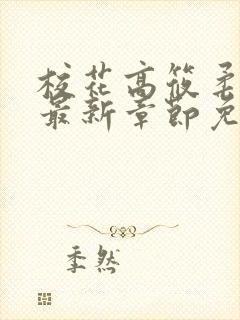 校花高筱柔
最新章节免
季然